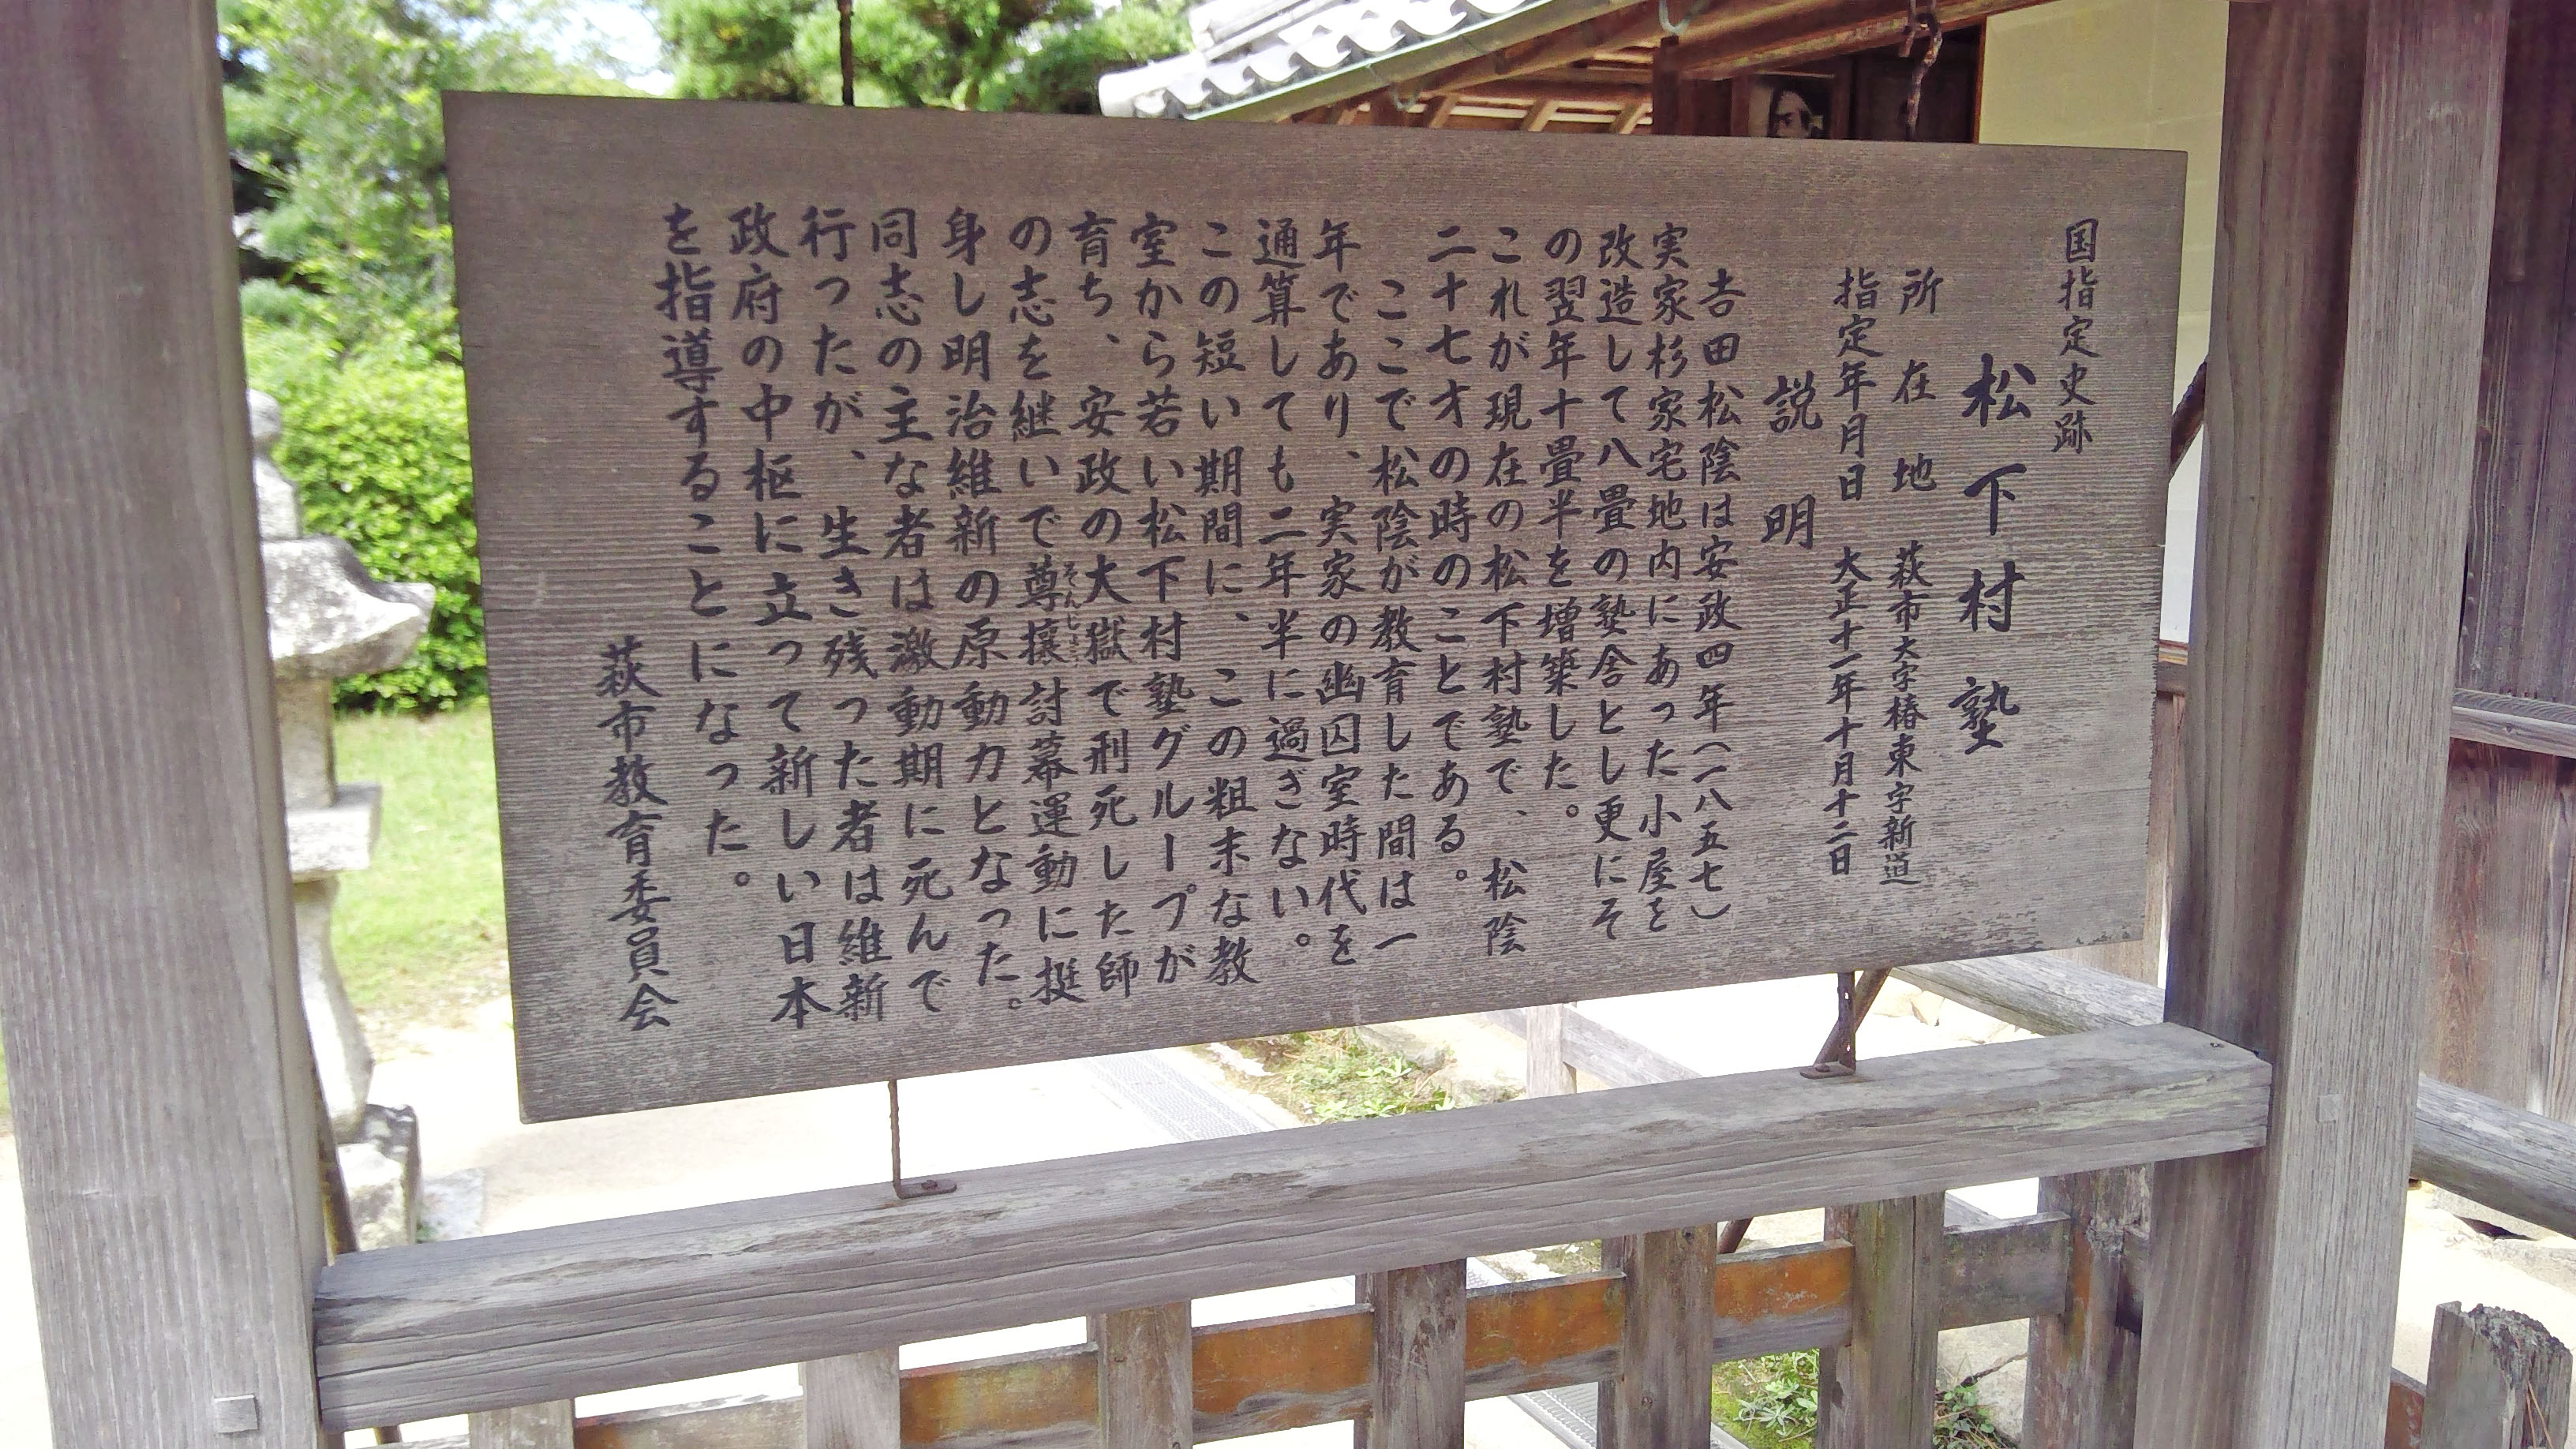 国指定史跡
松下村塾
所在地　萩市大字椿東字新道
指定年月日　大正十一年十月十二日
説明
吉田松陰は安政四年（一八五七）
実家杉家宅地内にあった小屋を
改造して八畳の塾舎とし更にそ
の翌年十畳半を増築した。
これが現在の松下村塾で、松陰
二十七才の時のことである。
ここで松陰が教育した間は一
年であり、実家の幽囚室時代を
通算しても二年半に過ぎない。
この短い期間に、この粗末な教
室から若い松下村塾グループが
育ち、安政の大獄で刑死した師
の志を継いで尊攘討幕運動に挺
そんじょう
身し明治維新の原動力となった。
同志の主な者は激動期に死んで
行ったが、生き残った者は維新
政府の中枢に立って新しい日本
を指導することになった。
萩市教育委員会